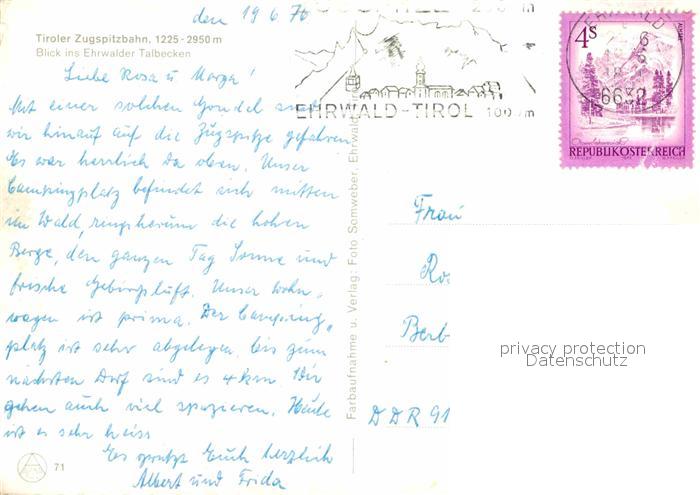 den 19 6 76
Tiroler Zugspitzbahn, 1225 - 2950 m
Blick ins Ehrwalder Talbecken
Liebe Rosa u Marga!
Mit einer solchen Gondel sind
wir hinauf auf die Zugspitze gefahren
Es war herrlich da oben. Unser
Campingplatz befindet sich mitten
im Wald, ringsherum die hohen
Berge, den ganzen Tag Sonne und
frische Gebirgsluft. Unser Wohn„
wagen ist prima. Der Camping„
platz ist sehr abgelegen, bis zum
nächsten Dorf sind es 4 km. Wir
gehen auch viel spazieren. Heute
ist es sehr heiss
Es grüsst Euch herzlich
Albert und Frida
71
Farbaufnahme u. Verlag: Foto Somweber, Ehrwald
EHRWALD-TIROL 1000m
4s
6632
REPUBLIK ÖSTERREICH
Frau
Ro.
Berb
DDR 91
privacy protection
Datenschutz